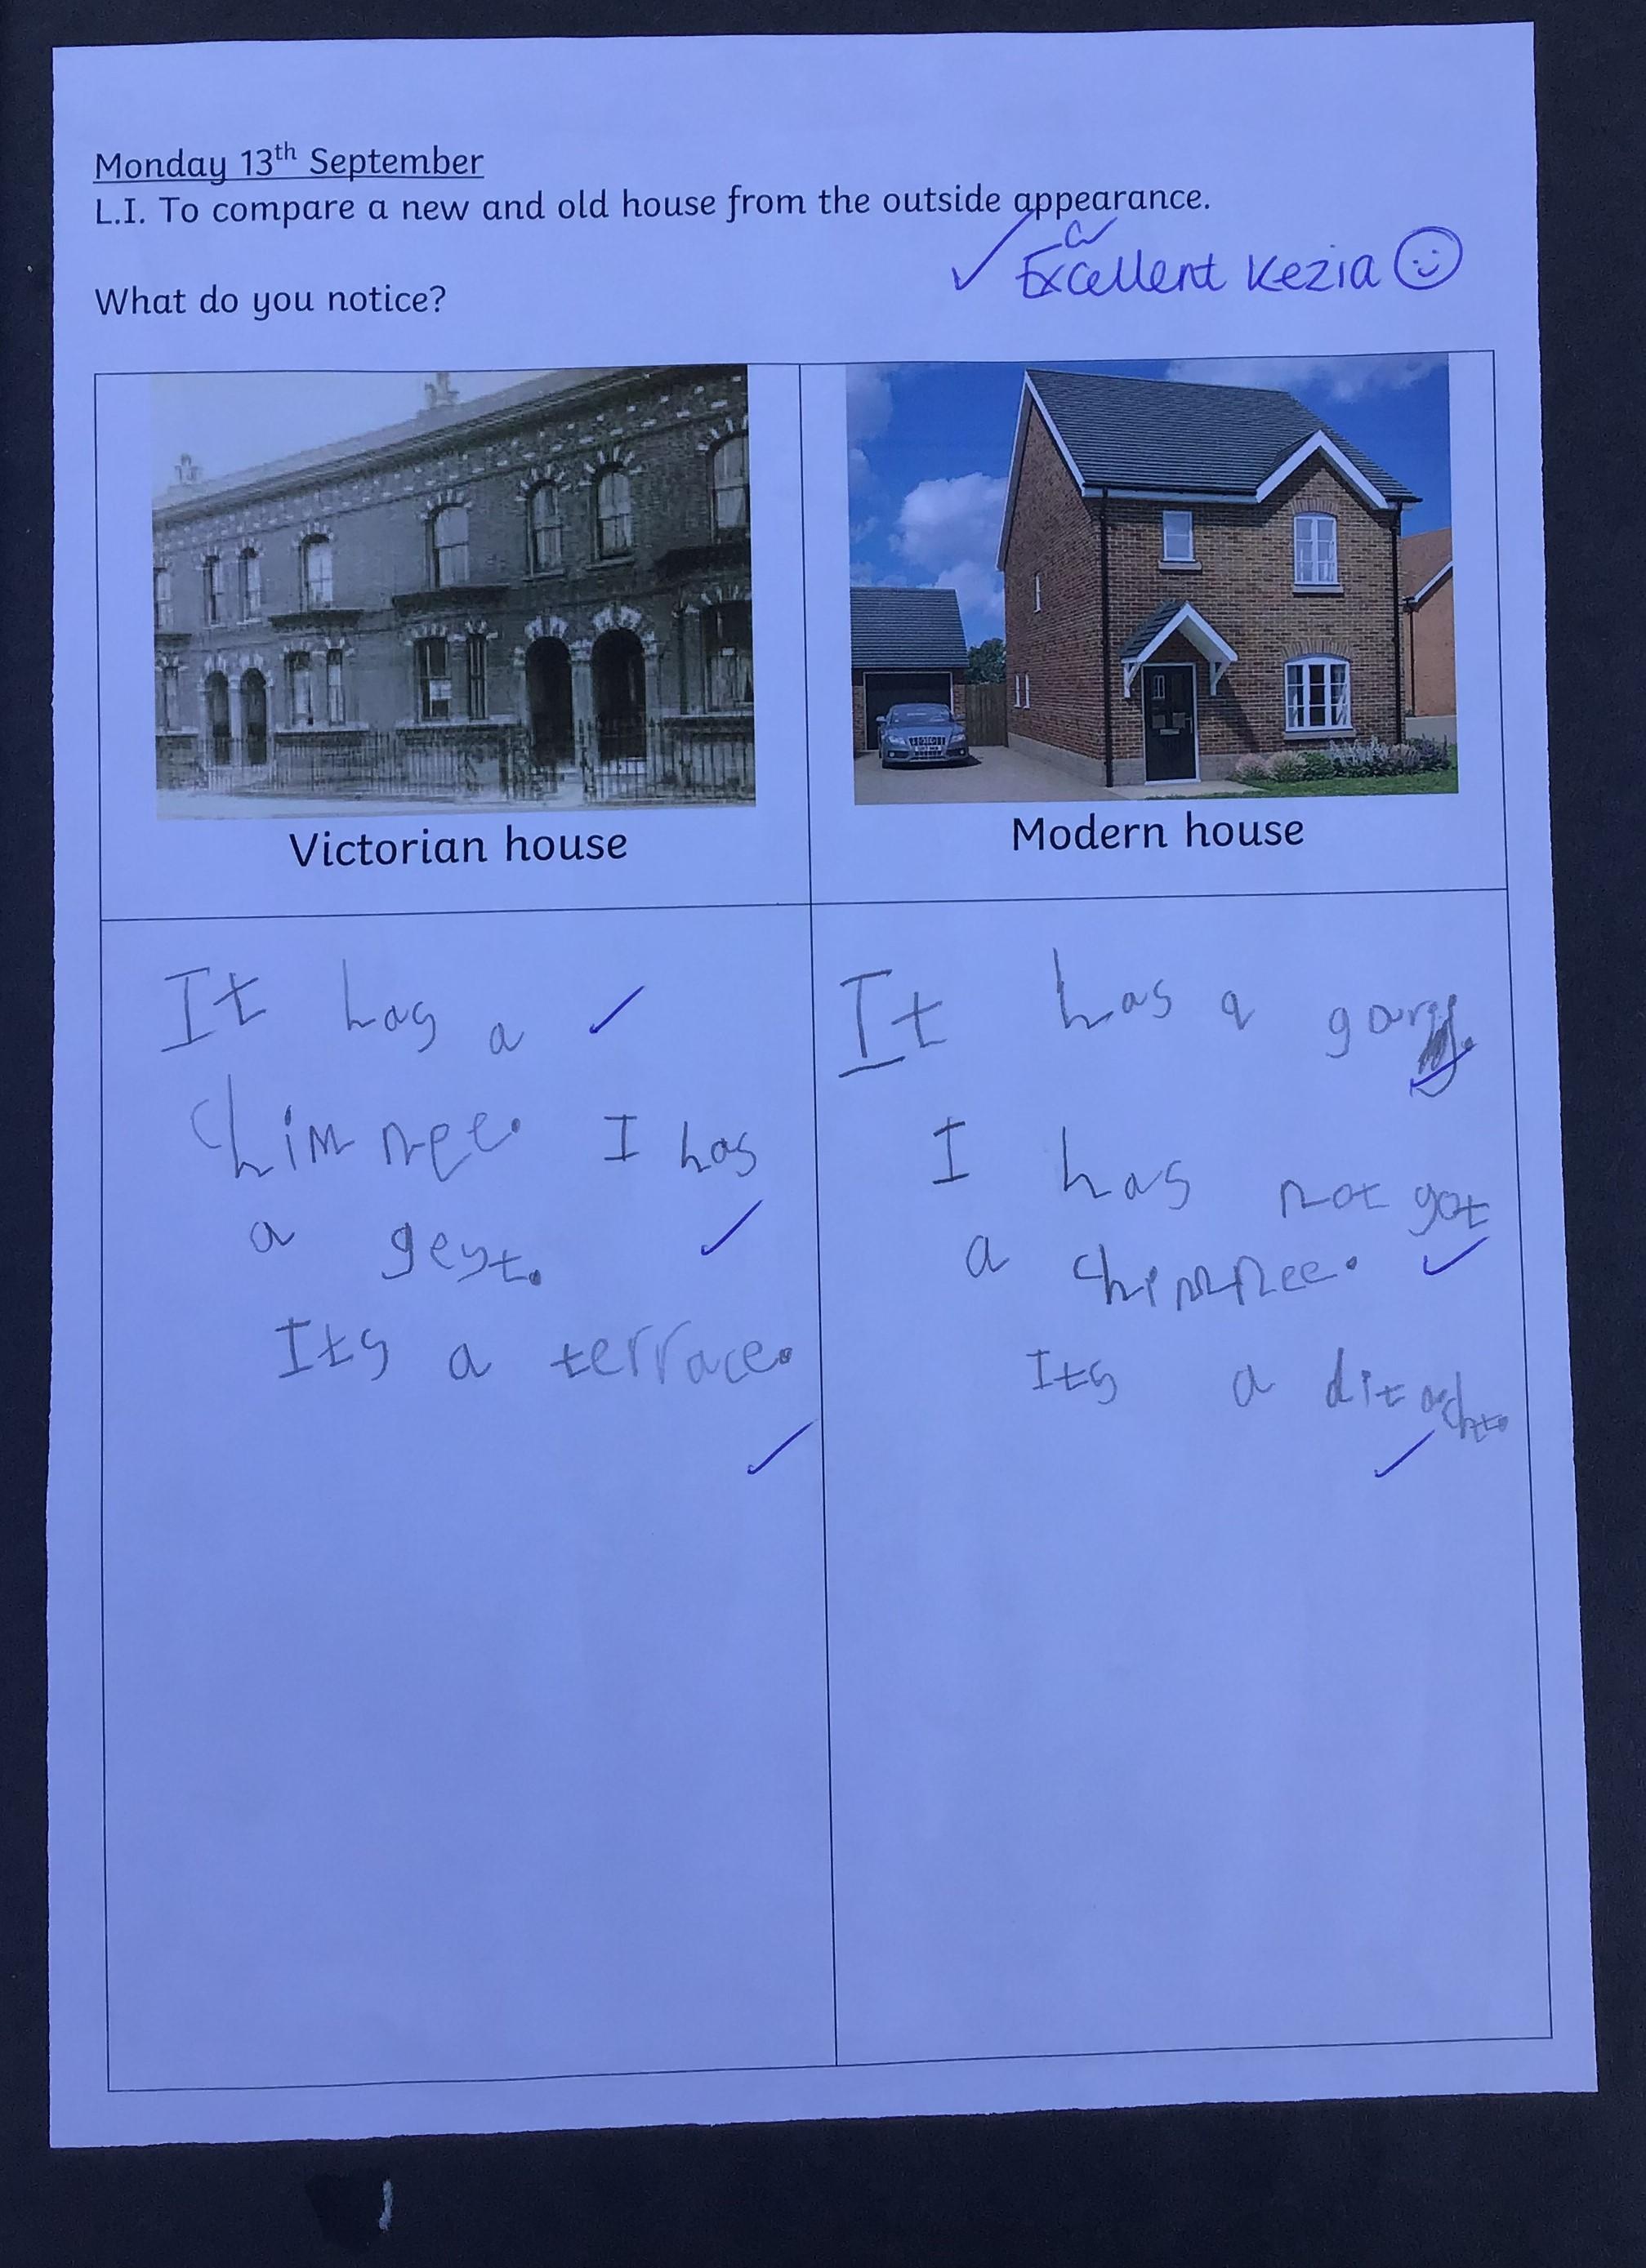 Monday 13th September
L.I. To compare a new and old house from the outside appearance.
Excellent Kezia
What do you notice?
Victorian house
Modern house
It has a
chimnee. I has
a geyt.
Its a terrace.
It has a
I has not got
a chimnee.
Its a ditacht.